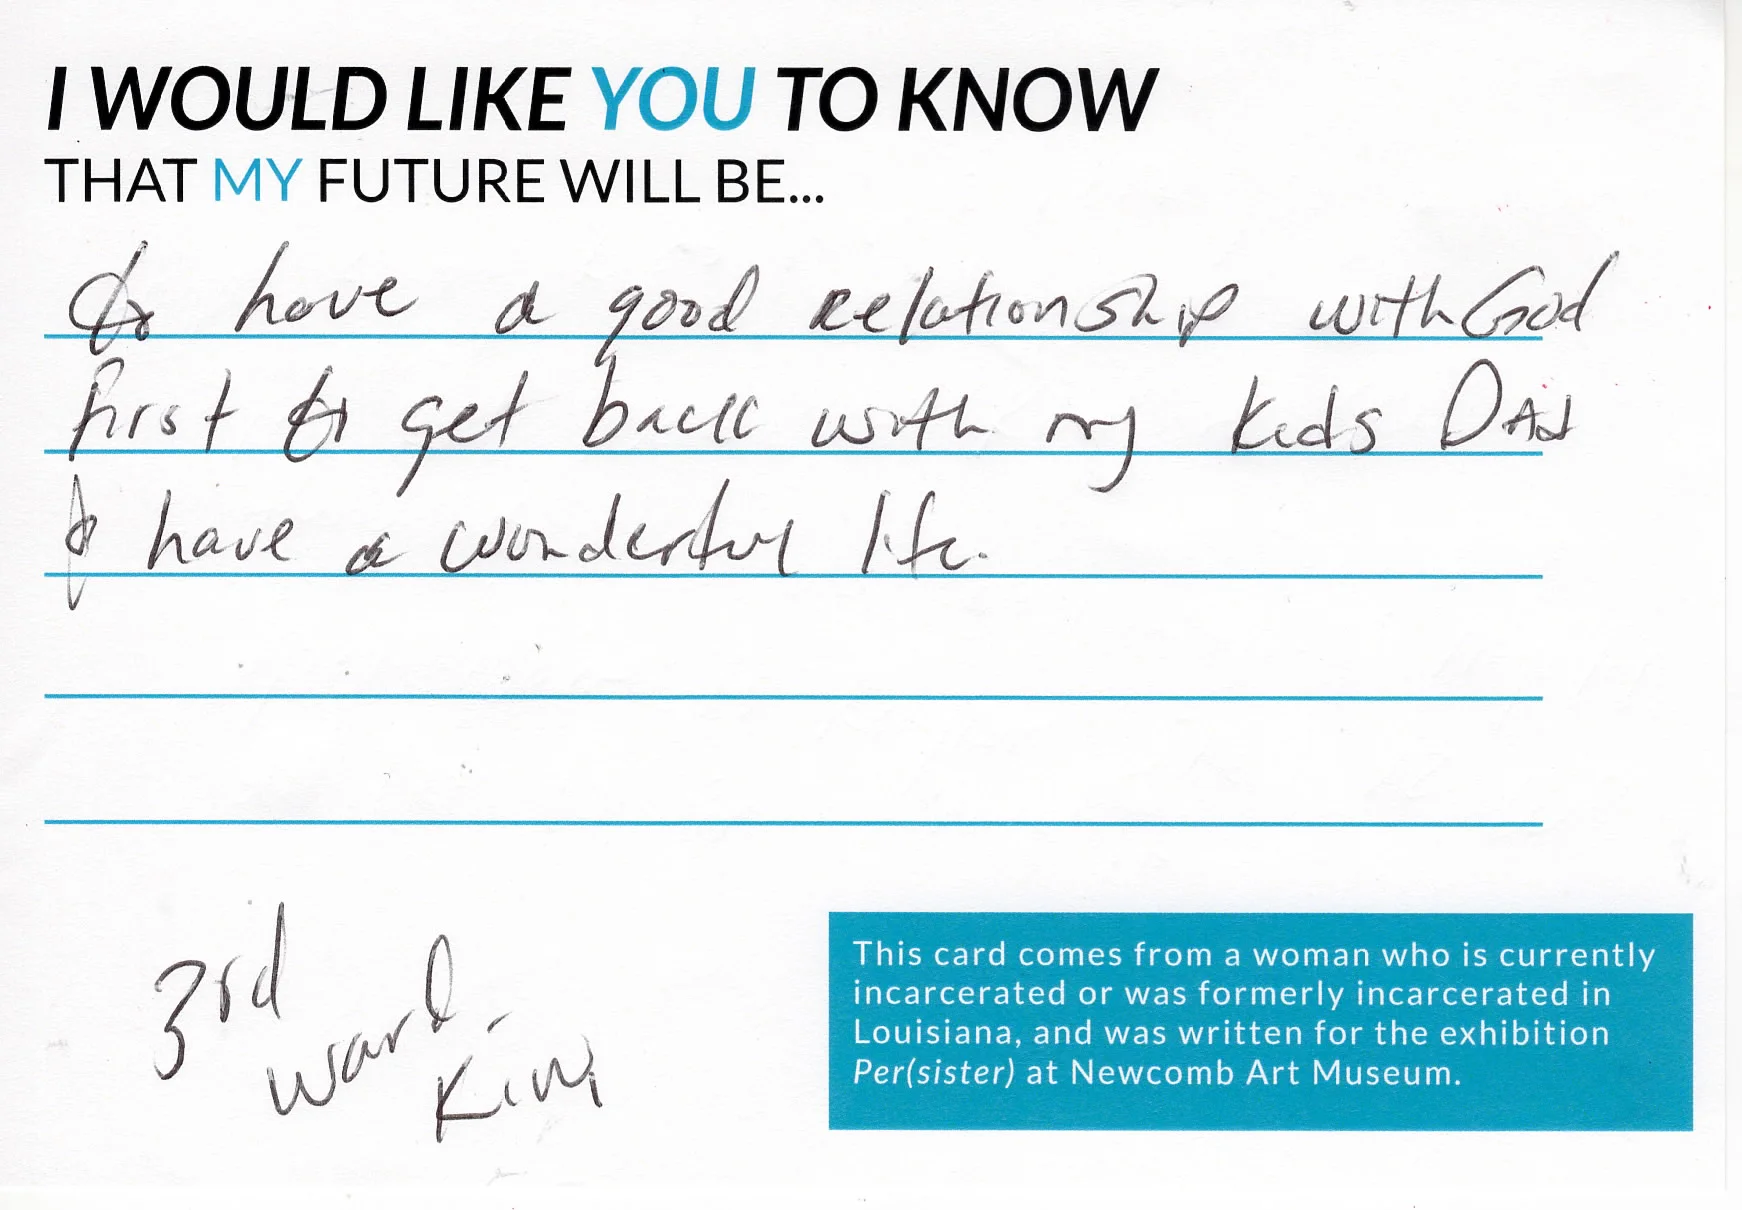 I WOULD LIKE YOU TO KNOW
THAT MY FUTURE WILL BE...
to have a good relationship with God
first to get back with my kids DAd
& have a wonderful life.
3rd
Ward
Kim
This card comes from a woman who is currently
incarcerated or was formerly incarcerated in
Louisiana, and was written for the exhibition
Per(sister) at Newcomb Art Museum.